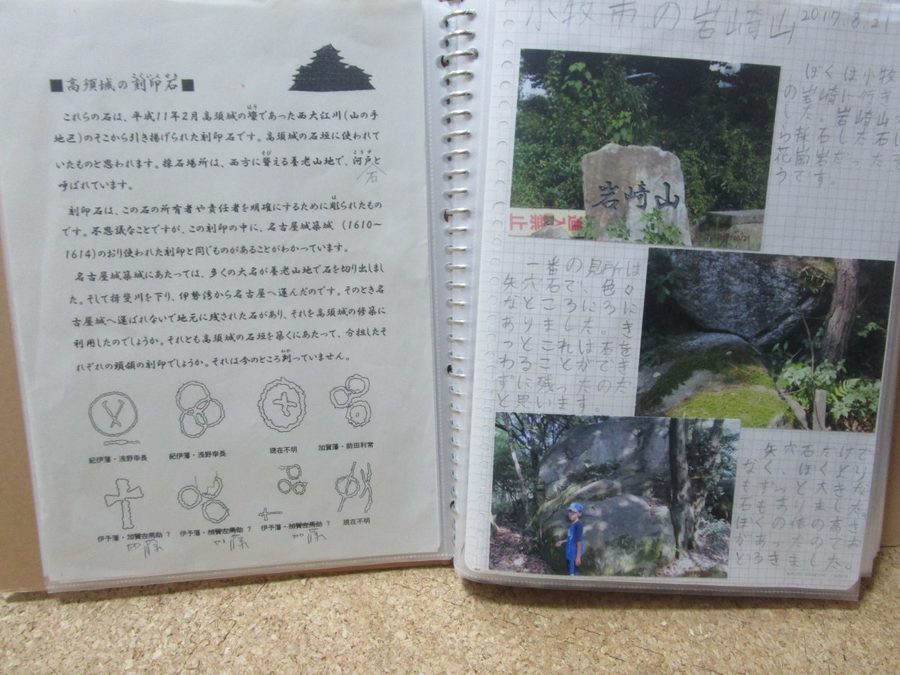 ■高須城の刻印石■
これらの石は、平成11年2月高須城の壕であった西大江川(山の手
地区)のそこから引き揚げられた刻印石です。高須城の石垣に使われて
いたものと思われます。採石場所は、西方に聳える養老山地で、河戸と
石
呼ばれています。
刻印石は、この石の所有者や責任者を明確にするために彫られたもの
です。不思議なことですが、この刻印の中に、名古屋城築城 (1610～
1614)のおり使われた刻印と同じものがあることがわかっています。
名古屋城築城にあたっては、多くの大名が養老山地で石を切り出しまし
た。そして揖斐川を下り、伊勢湾から名古屋へ運んだのです。そのとき名
古屋城へ運ばれないで地元に残された石があり、それを高須城の修築に
利用したのでしょうか。それとも高須城の石垣を築くにあたって、分担したそ
れぞれの頭領の刻印でしょうか。それは今のところ判っていません。
紀伊藩・浅野幸長
紀伊藩・浅野幸長
現在不明
加賀藩・前田利常
伊予藩・加賀左馬助 ?
伊予藩・加賀左馬助 ?
伊予藩・加賀左馬助 ?
現在不明
加藤
加藤
加藤
小牧市の岩崎山 2017.8.21
ぼくは小牧
の岩崎山
花崗岩だ
うです
岩崎山
進入禁止
一番の見所は
矢穴石で、色々
なところに
ありました。き
っとこれは石を
わることができ
ずに残ったのだ
と思います。
矢穴石だけで
なく、ぼくより
もずっと大きな
石もありました。
ぼくの体の高さ
どろきました。